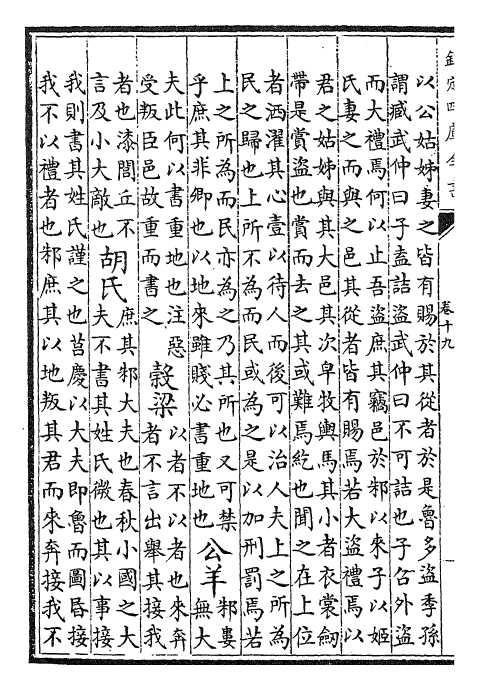 欽定四庫全書
卷十九
以公姑姊妻之皆有賜於其從者於是魯多盜季孫
謂臧武仲曰子盍詰盜武仲曰不可詰也子召外盜
而大禮焉何以止吾盜庶其竊邑於邾以來子以姬
氏妻之而與之邑其從者皆有賜焉若大盜禮焉以
君之姑姊與其大邑其次皁牧輿馬其小者衣裳劒
帶是賞盜也賞而去之其或難焉紇也聞之在上位
者洒濯其心壹以待人而後可以治人夫上之所為
民之歸也上所不為而民或為之是以加刑罰焉若
上之所為而民亦為之乃其所也又可禁
乎庶其非卿也以地來雖賤必書重地也
公羊
邾婁
無大
夫此何以書重地也注惡
受叛臣邑故重而書之
穀梁
以者不以者也來奔
者不言出舉其接我
者也漆閭丘不
言及小大敵也
胡氏
庶其邾大夫也春秋小國之大
夫不書其姓氏微也其以事接
我則書其姓氏謹之也莒慶以大夫即魯而圖昏接
我不以禮者也邾庶其以地叛其君而來奔接我不